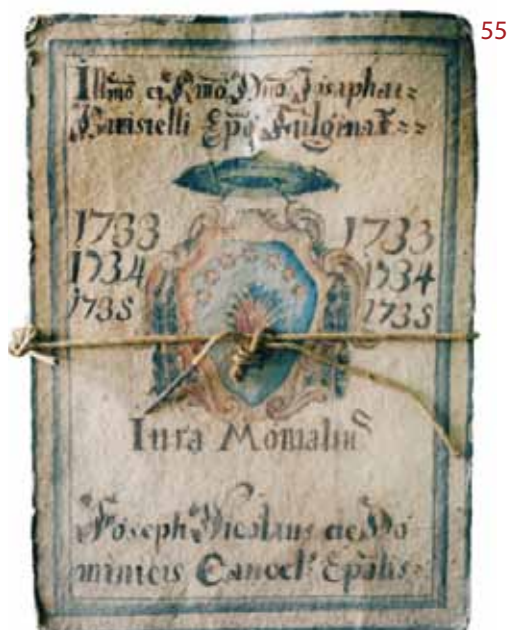 55
Illmõ et Rmõ Dño Josaphat=
Battistelli Epõ Fulginat==
1733 1733
1734 1734
1735 1735
Iura Monialiũ
Joseph Nicolaus de Do
minicis Cancelˢ Epãlis